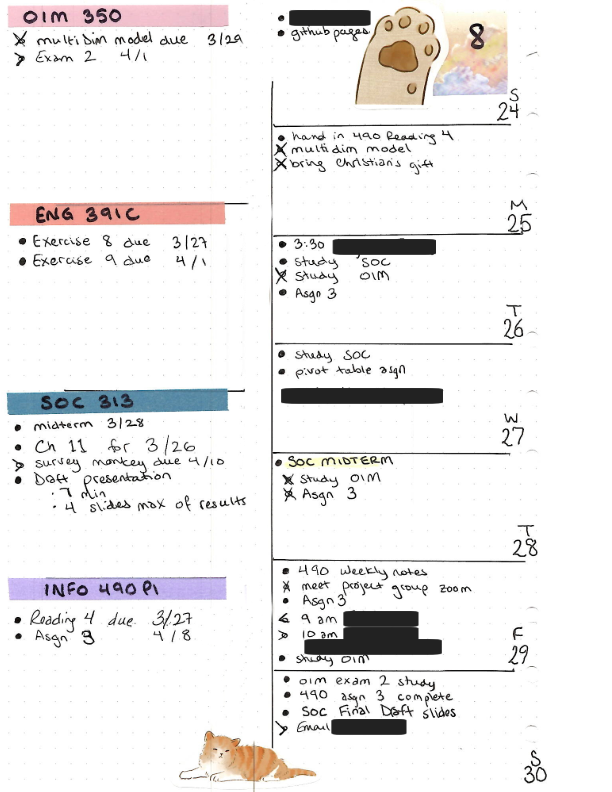 OIM 350
multidim model due 3/29
Exam 2 4/1
ENG 391C
Exercise 8 due 3/27
Exercise 9 due 4/1
SOC 313
midterm 3/28
Ch 11 for 3/26
survey monkey due 4/10
Draft presentation
7 min
4 slides max of results
INFO 490PI
Reading 4 due 3/27
Asgn 3 4/8
8
github pages
S
24
hand in 490 Reading 4
multidim model
bring Christian's gift
M
25
3:30
study SOC
study OIM
Asgn 3
T
26
study SOC
pivot table asgn
W
27
SOC MIDTERM
study OIM
Asgn 3
T
28
490 weekly notes
meet project group zoom
Asgn 3
9 am
10 am
study OIM
F
29
OIM exam 2 study
490 asgn 3 complete
SOC Final Draft slides
Email
S
30